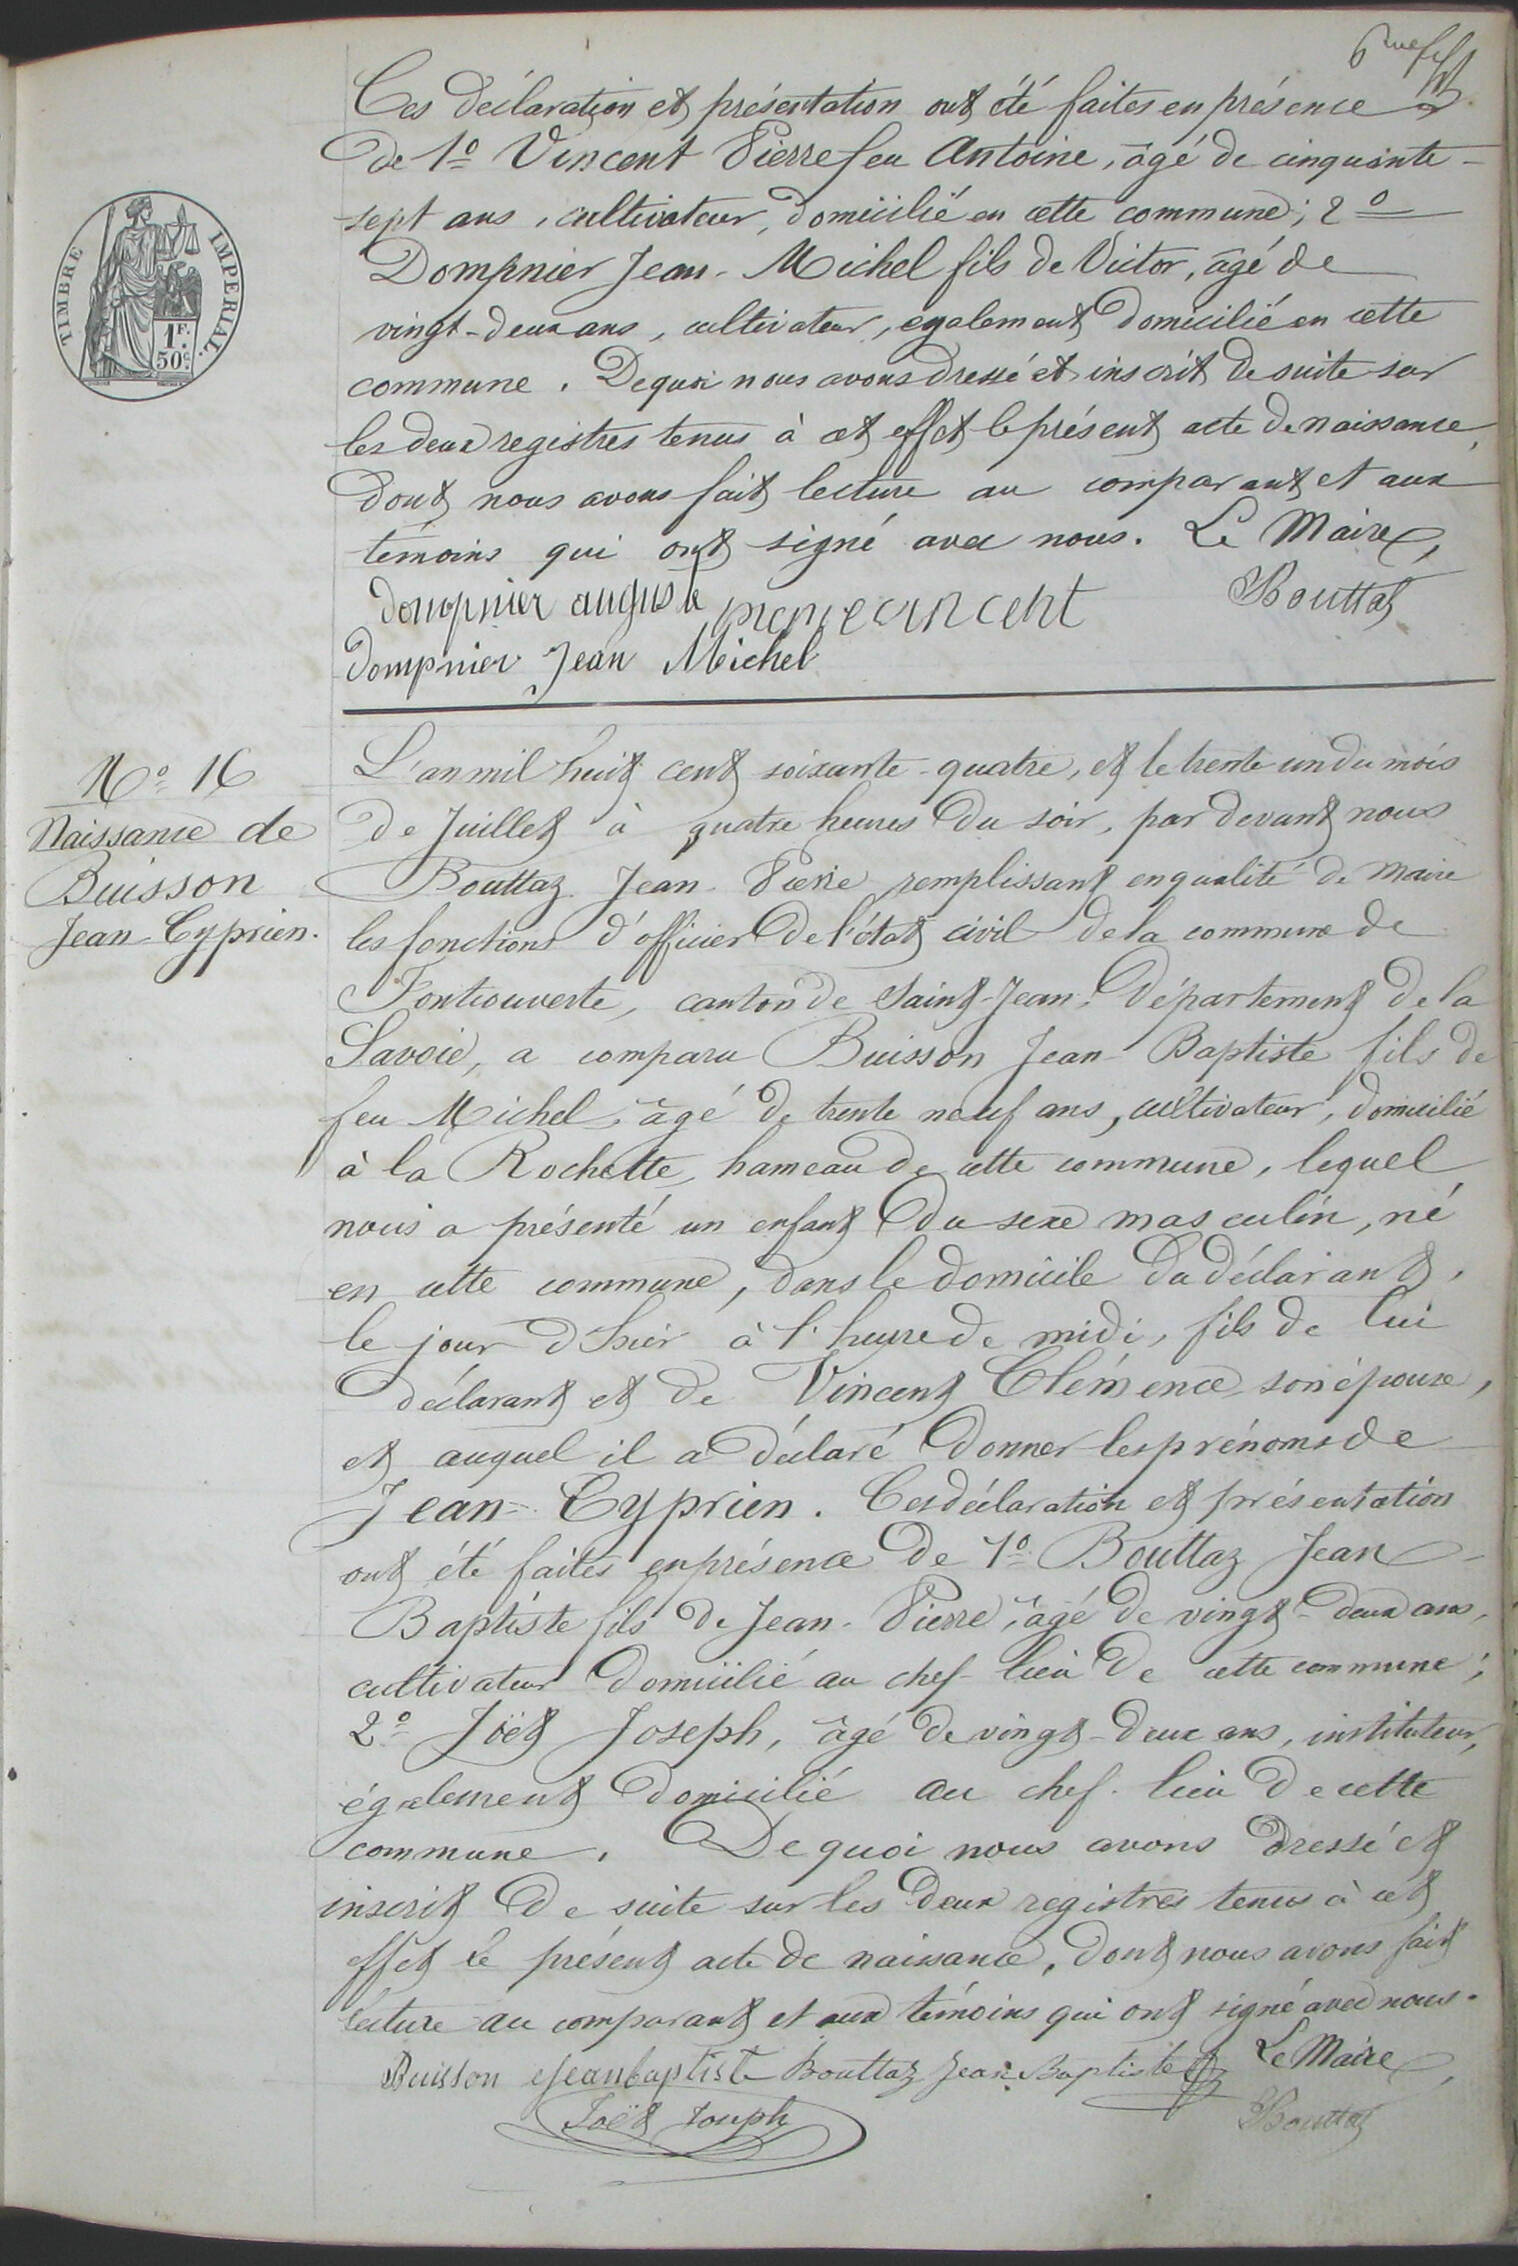 Ces déclaration et présentation ont été faites en présence
de 1º Vincent Pierre feu Antoine, âgé de cinquante-
sept ans, cultivateur, domicilié en cette commune; 2º
Dompnier Jean-Michel fils de Victor, âgé de
vingt-deux ans, cultivateur, egalement domicilié en cette
commune. De quoi nous avons dressé et inscrit de suite sur
les deux registres tenus à cet effet le présent acte de naissance,
dont nous avons fait lecture au comparant et aux
témoins qui ont signé avec nous. Le Maire,
dompnier auguste vincent Bouttaz
dompnier Jean Michel
TIMBRE IMPERIAL.
1F.
50c.
Nº 16
Naissance de
Buisson
Jean-Cyprien.
L'an mil huit cent soixante-quatre, et le trente un du mois
de Juillet à quatre heures du soir, par devant nous
Bouttaz Jean-Pierre remplissant en qualité de Maire
les fonctions d'officier de l'état civil de la commune de
Fontcouverte, canton de Saint-Jean, Département de la
Savoie, a comparu Buisson Jean-Baptiste fils de
feu Michel, âgé de trente neuf ans, cultivateur, domicilié
à la Rochette, hameau de cette commune, lequel
nous a présenté un enfant du sexe masculin, né
en cette commune, dans le domicile du déclarant,
le jour d'hier à l'heure de midi, fils de lui
déclarant et de Vincent Clémence son épouse,
et auquel il a déclaré donner les prénoms de
Jean-Cyprien. Ces déclaration et présentation
ont été faites en présence de 1º Bouttaz Jean-
Baptiste fils de Jean-Pierre, âgé de vingt-deux ans,
cultivateur domicilié au chef-lieu de cette commune;
2º Joët Joseph, âgé de vingt-deux ans, instituteur,
également domicilié au chef-lieu de cette
commune. De quoi nous avons dressé et
inscrit de suite sur les deux registres tenus à cet
effet le présent acte de naissance, dont nous avons fait
lecture au comparant et aux témoins qui ont signé avec nous.
Buisson jeanbaptiste Bouttaz Jean-Baptiste Le Maire,
Joët Joseph Bouttaz